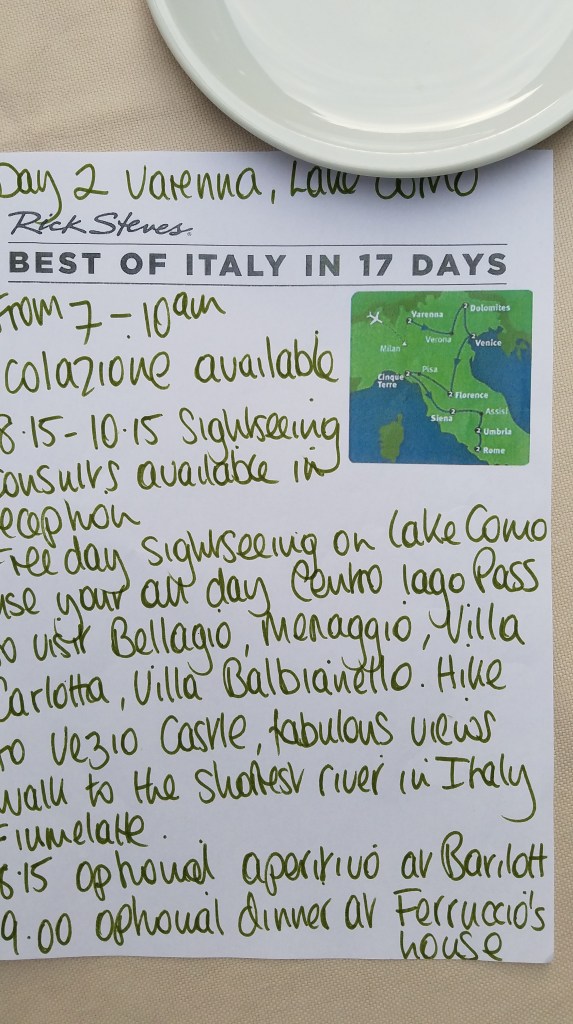 Day 2 Varenna, Lake Como
Rick Steves
BEST OF ITALY IN 17 DAYS
From 7-10am
colazione available
8.15-10.15 Sightseeing
consults available in
reception
Free day sightseeing on Lake Como
use your all day Centro lago Pass
to visit Bellagio, Menaggio, Villa
Carlotta, Villa Balbianello. Hike
to Vezio Castle, fabulous views
walk to the shortest river in Italy
Fiumelatte.
8.15 optional aperitivo at Barilott
9.00 optional dinner at Ferruccio's
house
Varenna
2
Dolomites
2
Verona
Venice
2
Milan
Pisa
Cinque
Terre
2
Florence
2
Siena
2
Assisi
Umbria
2
Rome
2